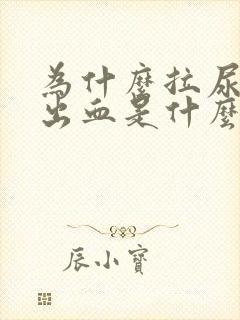 為什麼拉尿
出血是什麼
辰小寶